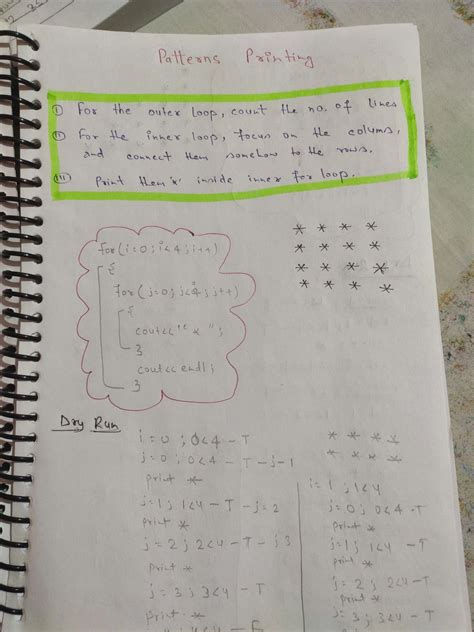 Patterns Printing
① For the outer loop, count the no. of lines
② For the inner loop, focus on the colums,
and connect them somehow to the rows.
③ Print them '*' inside inner for loop.
for(i=0; i<4; i++)
{
for(j=0; j<4; j++)
{
cout<<"* ";
}
cout<<endl;
}
* * * *
* * * *
* * * *
* * * *
Dry Run
i=0; 0<4 - T
j=0; 0<4 - T - j=1
print *
j=1; 1<4 - T - j=2
print *
j=2; 2<4 - T - j3
print *
j=3; 3<4 - T
print *
* * * *
* * * *
i=1; 1<4
j=0; 0<4 - T
print *
j=1; 1<4 - T
print *
j=2; 2<4 - T
print *
j=3; 3<4 - T